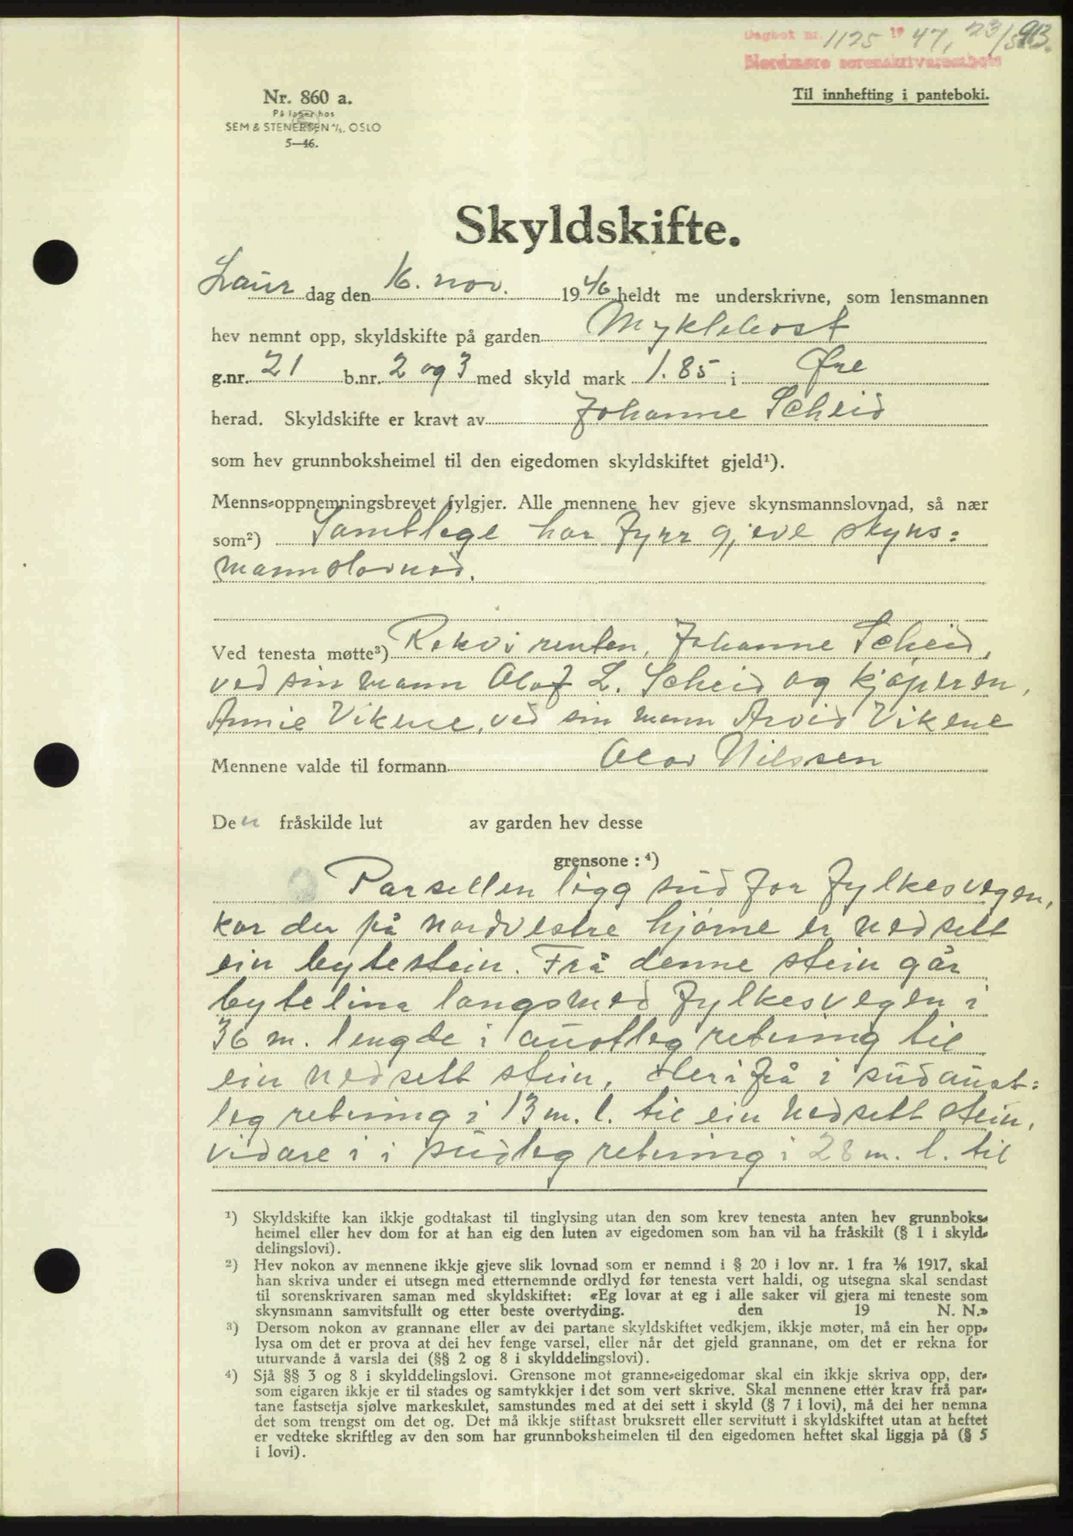 Dagbok nr. 1125 1947, 23/5 913.
Nordmøre sorenskrivarembete
Nr. 860 a.
Til innhefting i panteboki.
På lager hos
SEM & STENERSEN A/S, OSLO
5—46.
Skyldskifte.
Laur dag den 16. nov. 1946 heldt me underskrivne, som lensmannen
hev nemnt opp, skyldskifte på garden Myklebost
g.nr. 21 b.nr. 2 og 3 med skyld mark 1.85 i Øre
herad. Skyldskifte er kravt av Johanne Scheid
som hev grunnboksheimel til den eigedomen skyldskiftet gjeld¹).
Menns-oppnemningsbrevet fylgjer. Alle mennene hev gjeve skynsmannslovnad, så nær
som²) Samtlege har fyrr gjeve skyns=
mannslovnad.
Ved tenesta møtte³) Rekvirenten, Johanne Scheid,
ved sin mann Olaf L. Scheid og kjøperen,
Annie Vikene, ved sin mann Arvid Vikene
Mennene valde til formann Olav Nilssen
Den fråskilde lut av garden hev desse
grensone : ⁴)
Parsellen ligg sud for fylkesvegen,
kor der på nordvestre hjørne er nedsett
ein bytestein. Frå denne stein går
bytelina langsmed fylkesvegen i
36 m. lengde i austleg retning til
ein nedsett stein, derifrå i sudaust=
leg retning i 13 m. l. til ein nedsett stein,
vidare i i sudleg retning i 28 m. l. til
¹) Skyldskifte kan ikkje godtakast til tinglysing utan den som krev tenesta anten hev grunnboks-
heimel eller hev dom for at han eig den luten av eigedomen som han vil ha fråskilt (§ 1 i skyld-
delingslovi).
²) Hev nokon av mennene ikkje gjeve slik lovnad som er nemnd i § 20 i lov nr. 1 fra 1/6 1917, skal
han skriva under ei utsegn med etternemnde ordlyd før tenesta vert haldi, og utsegna skal sendast
til sorenskrivaren saman med skyldskiftet: «Eg lovar at eg i alle saker vil gjera mi teneste som
skynsmann samvitsfullt og etter beste overtyding. den 19 N. N.»
³) Dersom nokon av grannane eller av dei partane skyldskiftet vedkjem, ikkje møter, må ein her opp-
lysa om det er prova at dei hev fenge varsel, eller når det gjeld grannane, om det er rekna for
uturvande å varsla dei (§§ 2 og 8 i skylddelingslovi).
⁴) Sjå §§ 3 og 8 i skylddelingslovi. Grensone mot granne-eigedomar skal ein ikkje skriva opp, der-
som eigaren ikkje er til stades og samtykkjer i det som vert skrive. Skal mennene etter krav frå par-
tane fastsetja sjølve markeskilet, samstundes med at dei sett i skyld (§ 7 i lovi), må dei her nemna
det som trengst om det og. Det må ikkje stiftast bruksrett eller servitutt i skyldskiftet utan at heftet
er vedteke skriftleg av den som har grunnboksheimelen til den eigedomen heftet skal liggja på (§ 5
i lovi).